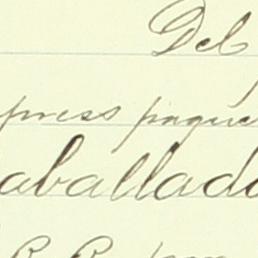 Del
press paque
aballad
R. R.